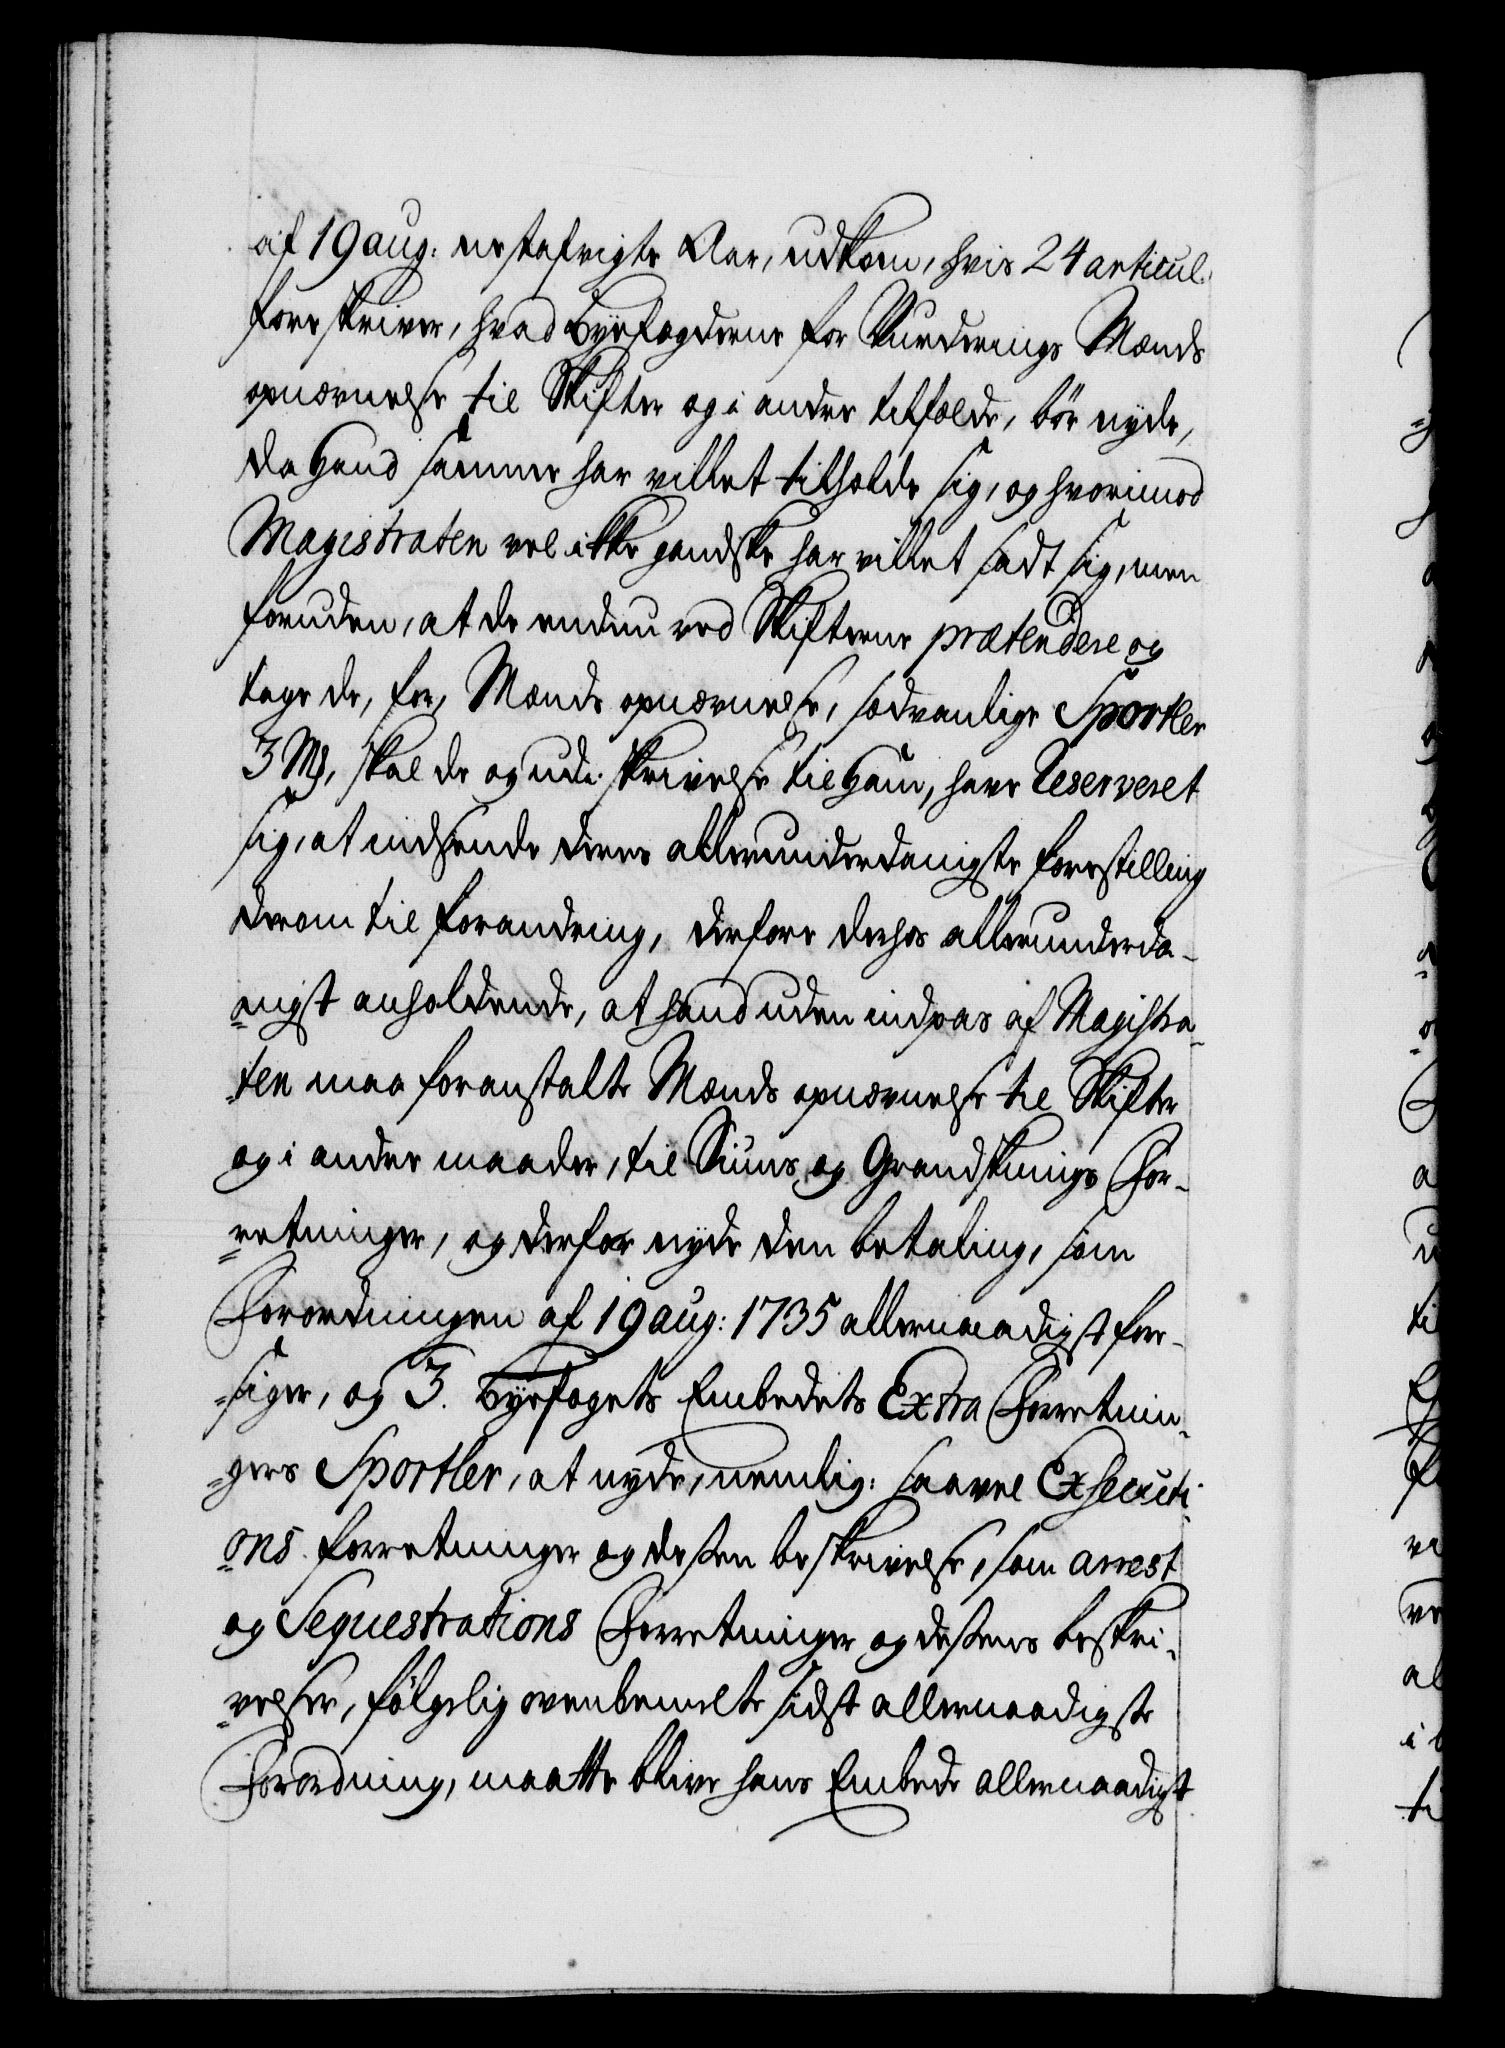 af 19 aug: nestafvigte Aar, udkom, hvis 24 articul.
foreskriver, hvad Byefogderne for Vurderings Mænds
opnævnelse til Skifter og i andre tilfælde, bör nyde,
da hand samme har villet tilholde sig, og hvorimod
Magistraten vel ikke gandske har villet sadt sig, men
foruden, at de endnu ved Skifterne prætendere og
tage de, for, Mænds opnævnelse, sædvanlige Sportler
3 Mk, skal de og udi skrivelse til ham, have Reserveret
sig, at indsende deres allerunderdanigste forestilling
derom til forandring, derfore derhos allerunderda-
nigst anholdende, at hand uden indpas af Magistra-
ten maa foranstalte Mænds opnævnelse til Skifter
og i andre maader, til Siuns og Grandsknings For-
retninger, og derfor nyde den betaling, som
Forordningen af 19 aug: 1735 allernaadigst for-
siger, og 3. Byefogets Embedets Extra Forretnin-
gers Sportler, at nyde, nemlig: saavel Exsecuti-
ons forretninger og dessen beskrivelse, som arrest
og Sequestrations Forretninger og dessens beskri-
velser, fölgelig ovenbemelte sidst allernaadigste
Forordning, maatte blive hans Embede allernaadigst